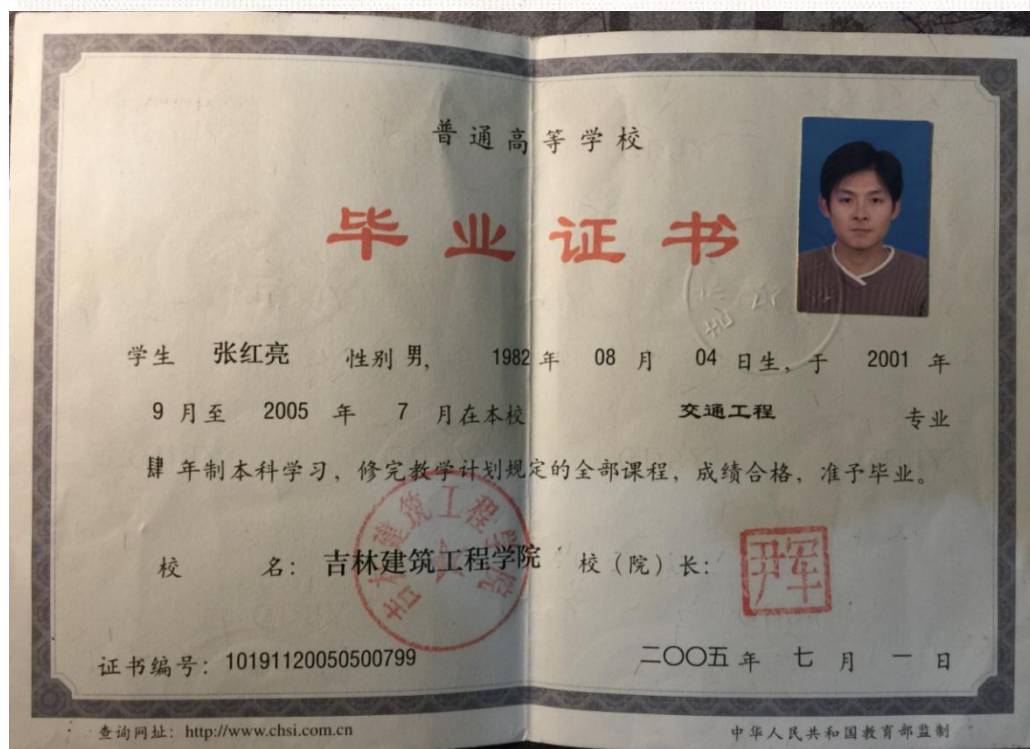 普通高等学校
毕业证书
学生 张红亮 性别 男, 1982 年 08 月 04 日生, 于 2001 年
9 月至 2005 年 7 月在本校 交通工程 专业
肆 年制本科学习, 修完教学计划规定的全部课程, 成绩合格, 准予毕业。
吉林建筑工程学院
校 名: 吉林建筑工程学院 校 (院) 长: 尹军
证书编号: 10191120050500799 二〇〇五 年 七 月 一 日
查询网址: http://www.chsi.com.cn 中华人民共和国教育部监制